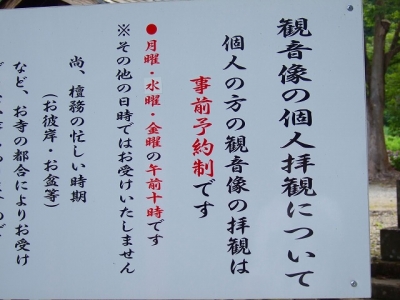 観音像の個人拝観について
個人の方の観音像の拝観は
事前予約制です
●月曜・水曜・金曜の午前十時です
※その他の日時ではお受けいたしません
尚、檀務の忙しい時期
(お彼岸・お盆等)
など、お寺の都合によりお受け